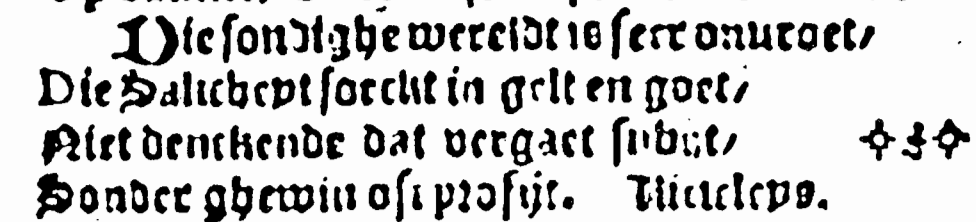 Die sondighe wereldt is seer onvroet/
Die Salicheyt soeckt in gelt en goet/
Niet denckende dat vergaet subijt/
Sonder ghewin oft profijt.